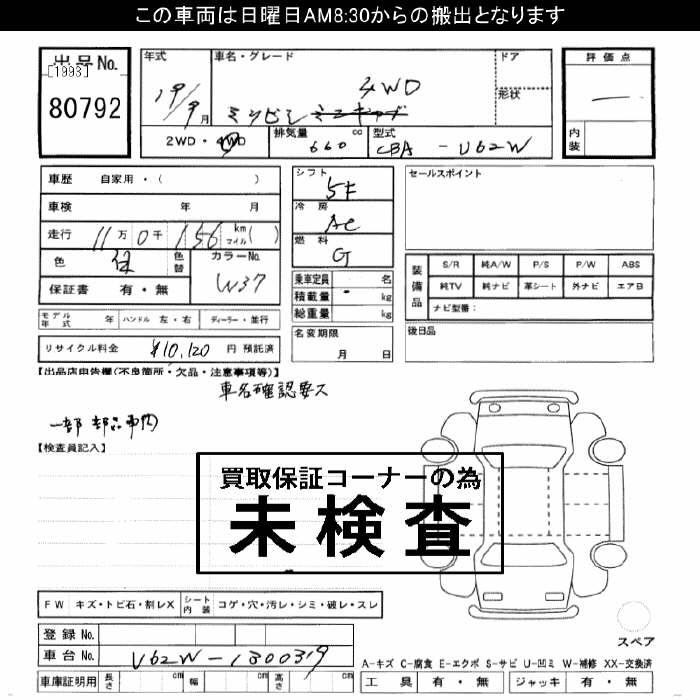 この車両は日曜日AM8:30からの搬出となります
出品No.
[1993]
80792
年式
車名・グレード
ドア
形状
評価点
19/9月
4WD
ミツビシ ミニキャブ
2WD・4WD
排気量 660 cc
型式 CBA - U62W
内装
車歴 自家用・( )
車検 年 月
走行 11万0千156 km マイル( )
色 色替 カラーNo. W37
保証書 有・無
シフト 5F
冷房 AC
燃料 G
乗車定員 名
積載量 - kg
総重量 kg
セールスポイント
装備品
S/R 純A/W P/S P/W ABS
純TV 純ナビ 革シート 外ナビ エアB
ナビ型番:
モデル年式 年 ハンドル 左・右 ディーラー・並行
名変期限 月 日
後日品
リサイクル料金 ¥10,120 円 預託済
【出品店申告欄(不良箇所・欠品・注意事項等)】
車名確認要ス
一部 部品車内
【検査員記入】
買取保証コーナーの為
未検査
FW キズ・トビ石・割レX シート内装 コゲ・穴・汚レ・シミ・破レ・スレ
登録No.
車台No. U62W-1300319
車庫証明用 長さ cm 幅 cm 高さ cm
スペア
A-キズ C-腐食 E-エクボ S-サビ U-凹ミ W-補修 XX-交換済
工具 有・無 ジャッキ 有・無